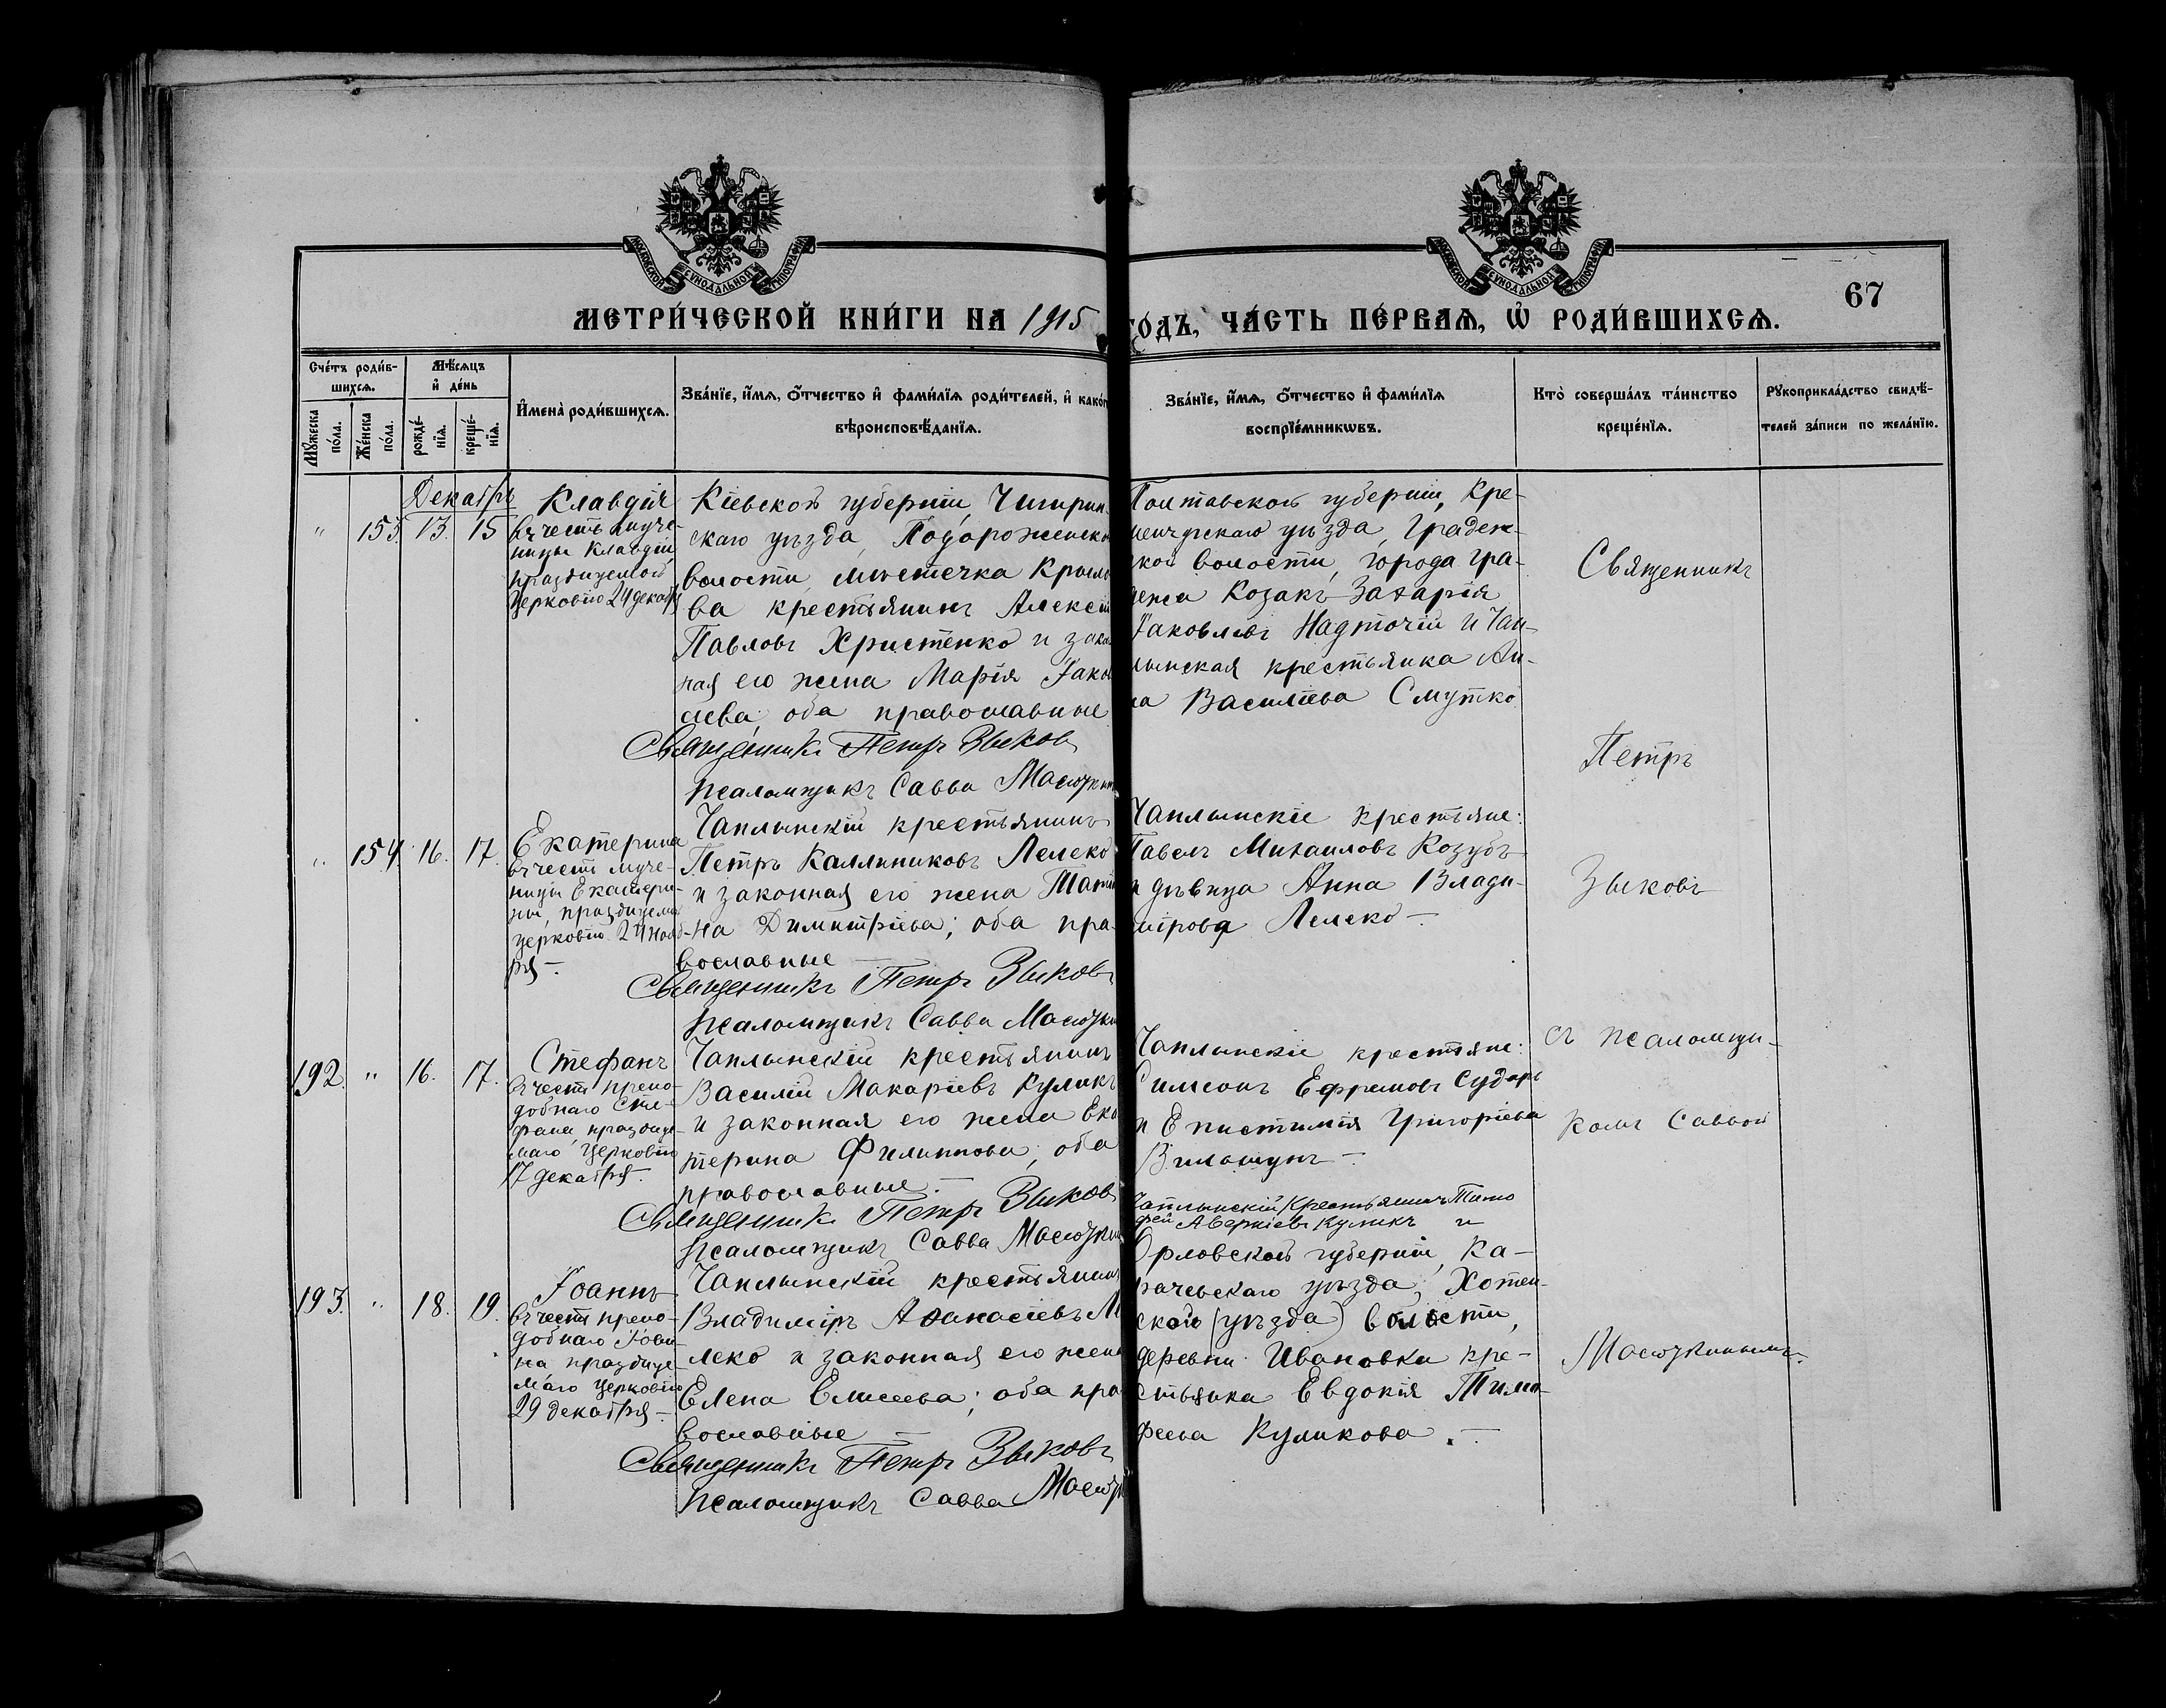 МОСКОВСКОЙ СѴНОДАЛЬНОЙ ТИПОГРАФІИ
МОСКОВСКОЙ СѴНОДАЛЬНОЙ ТИПОГРАФІИ
67
МЕТРИ́ЧЕСКОЙ КНИ́ГИ НА 1915 ГО́ДЪ, ЧА́СТЬ ПЕ́РВАѦ, Ѡ҆ РОДИ́ВШИХСѦ.
Сче́тъ роди́в-
шихсѧ.
Мꙋ́жеска
по́ла.
Же́нска
по́ла.
Мѣ́сѧцъ
и҆ де́нь
рожде́-
нїѧ.
креще́-
нїѧ.
И҆мена̀ роди́вшихсѧ.
Зва́нїе, и҆́мѧ, ѻ҆́тчество и҆ фами́лїѧ роди́телей, и҆ како́г
вѣроисповѣ́данїѧ.
Зва́нїе, и҆́мѧ, ѻ҆́тчество и҆ фами́лїѧ
воспрїе́мникѡвъ.
Кто̀ соверша́лъ та́инство
креще́нїѧ.
Рꙋкоприкла́дство свидѣ́-
телей за́писи по жела́нїю.
Декабрь
" 153. 13. 15
Клавдія
въ честь муче-
ницы Клавдіи
празднуемой
Церковію 24 декабр
Кіевской губерніи, Чигирин-
скаго уѣзда, Подороженско
волости, мѣстечка Крыло
ва крестьянинъ Алексѣй
Павловъ Христенко и закон
ная его жена Марія Іаков
лева, оба православные
Священникъ Петръ Зыковъ
Псаломщикъ Савва Масюткин
Полтавской губерніи, Кре-
менчугскаго уѣзда, Градиж-
ской волости, города Гра-
дижа Козакъ Захарія
Іаковлевъ Надточій и Чап-
лынская крестьянка Ан-
на Василіева Смутко
" 154. 16. 17.
Екатерина
въ честь муче-
ницы Екатери-
ны, празднуемой
церковію 24 нояб-
ря –
Чаплынскій крестьянинъ
Петръ Каллиниковъ Лелеко
и законная его жена Татія
на Димитріева; оба пра-
вославные –
Священникъ Петръ Зыковъ
Псаломщикъ Савва Масюткин
Чаплынскіе крестьяне:
Павелъ Михаиловъ Козубъ
и дѣвица Анна Влади-
мірова Лелеко –
192. " 16. 17.
Стефанъ
въ честь препо-
добнаго Сте-
фана, праздну-
емаго Церковію
17 декабря. –
Чаплынскій крестьянинъ
Василій Макаріевъ Куликъ
и законная его жена Ека
терина Филиппова, оба
православные. –
Священникъ Петръ Зыковъ
Псаломщикъ Савва Масюткин
Чаплынскіе крестьяне:
Симеонъ Ефремовъ Сударь
и Епистимія Григоріева
193. " 18. 19.
Іоаннъ
въ честь препо-
добнаго Іоан-
на празднуе-
маго Церковію
29 декабря –
Чаплынскій крестьянинъ
Владиміръ Аѳанасіевъ Ле
леко и законная его жена
Елена Елисеева; оба пра
вославные –
Священникъ Петръ Зыковъ
Псаломщикъ Савва Масютк
Чаплынскій Крестьянинъ Тимо
фей Аверкіевъ Куликъ и
Орловской губерніи, Ка-
рачевскаго уѣзда, Хотен-
ской (уѣзда) волости,
деревни Ивановки кре-
стьянка Евдокія Тимо-
феева Куликова. –
Священникъ
Петръ
Зыковъ
съ псаломщи-
комъ Саввой
Масюткинымъ.